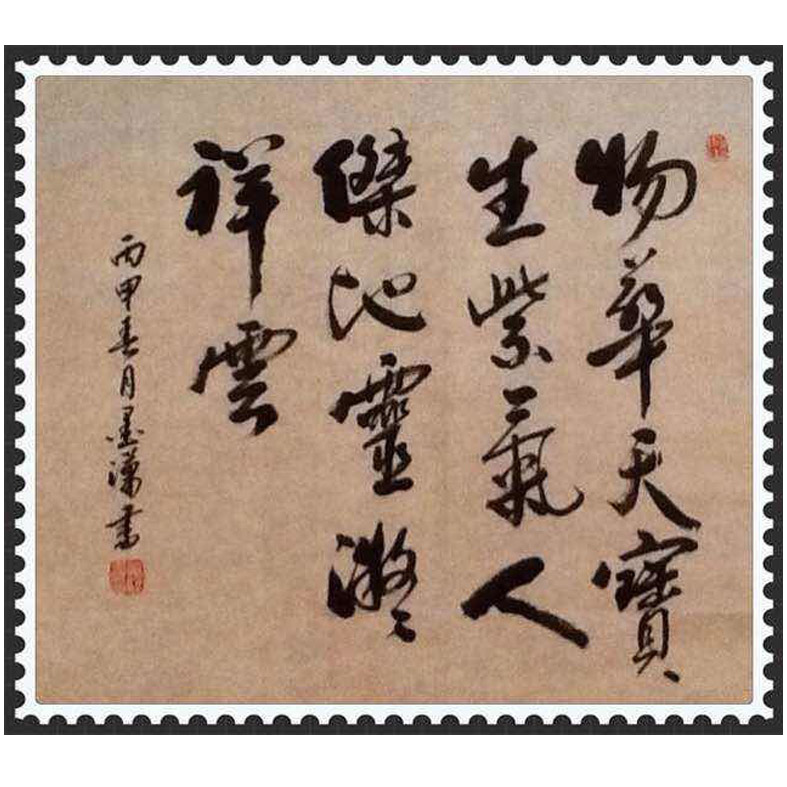 物華天寶
生紫氣人
傑地靈凝
祥雲
丙申春月墨書